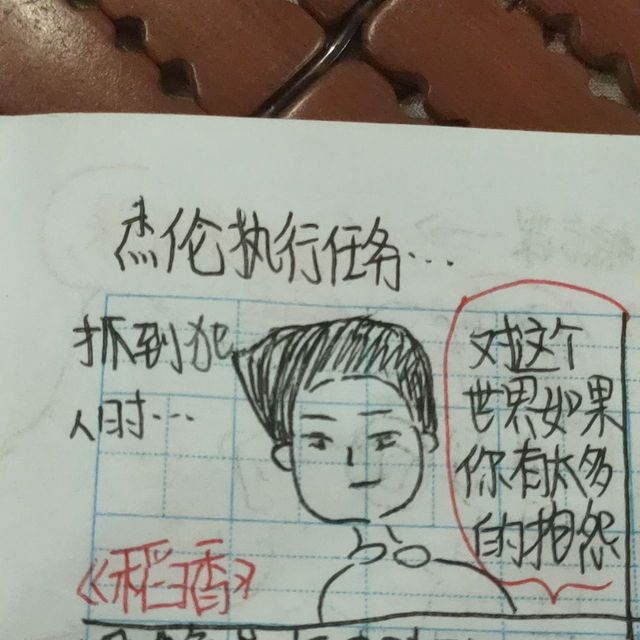 杰伦执行任务...
抓到犯
人时...
对这个
世界如果
你有太多
的抱怨
《稻香》